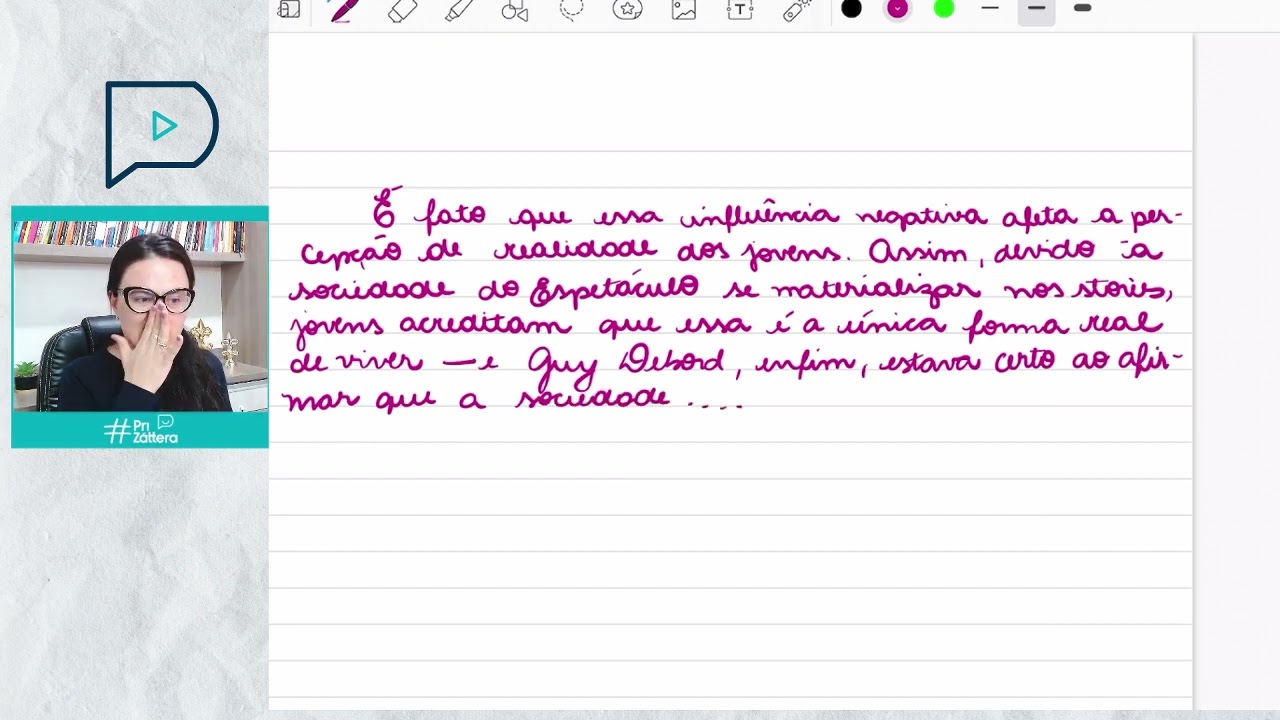 É fato que essa influência negativa afeta a per-
cepção de realidade dos jovens. Assim, devido à
sociedade do Espetáculo se materializar nos stories,
jovens acreditam que essa é a única forma real
de viver — e Guy Debord, enfim, estava certo ao afir-
mar que a sociedade .....
#Pri
Záttera